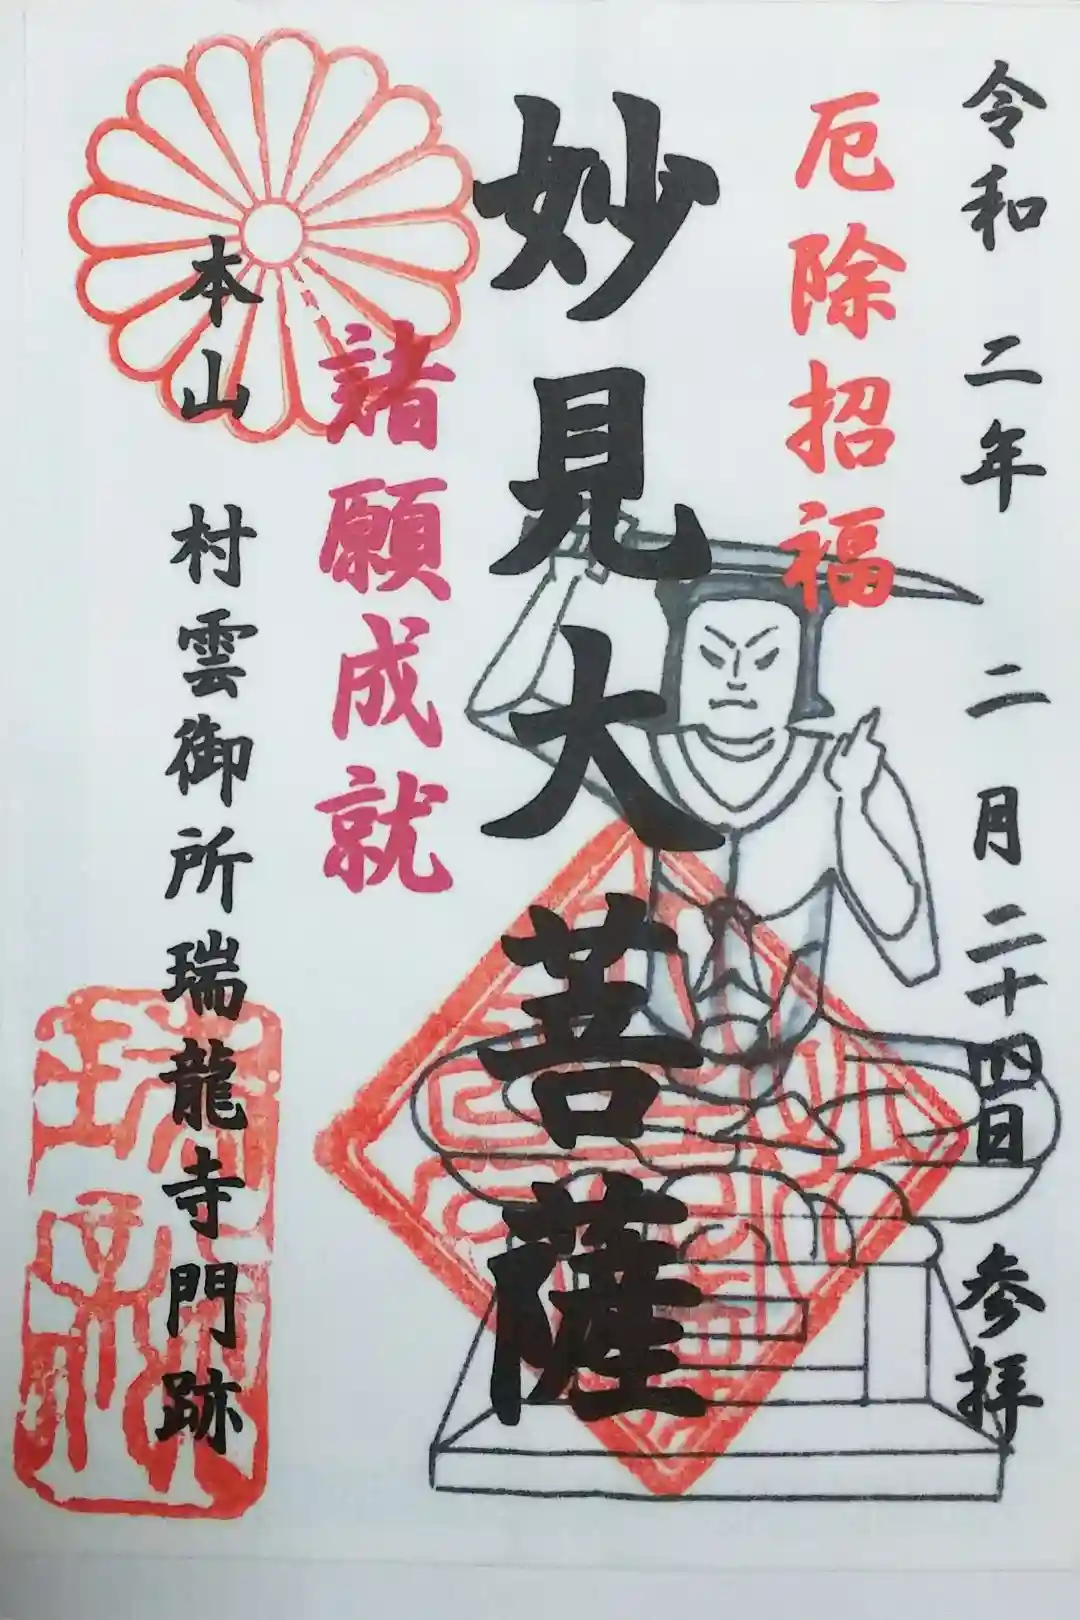 令和二年二月二十四日 参拝
厄除招福
妙見大菩薩
諸願成就
本山 村雲御所瑞龍寺門跡